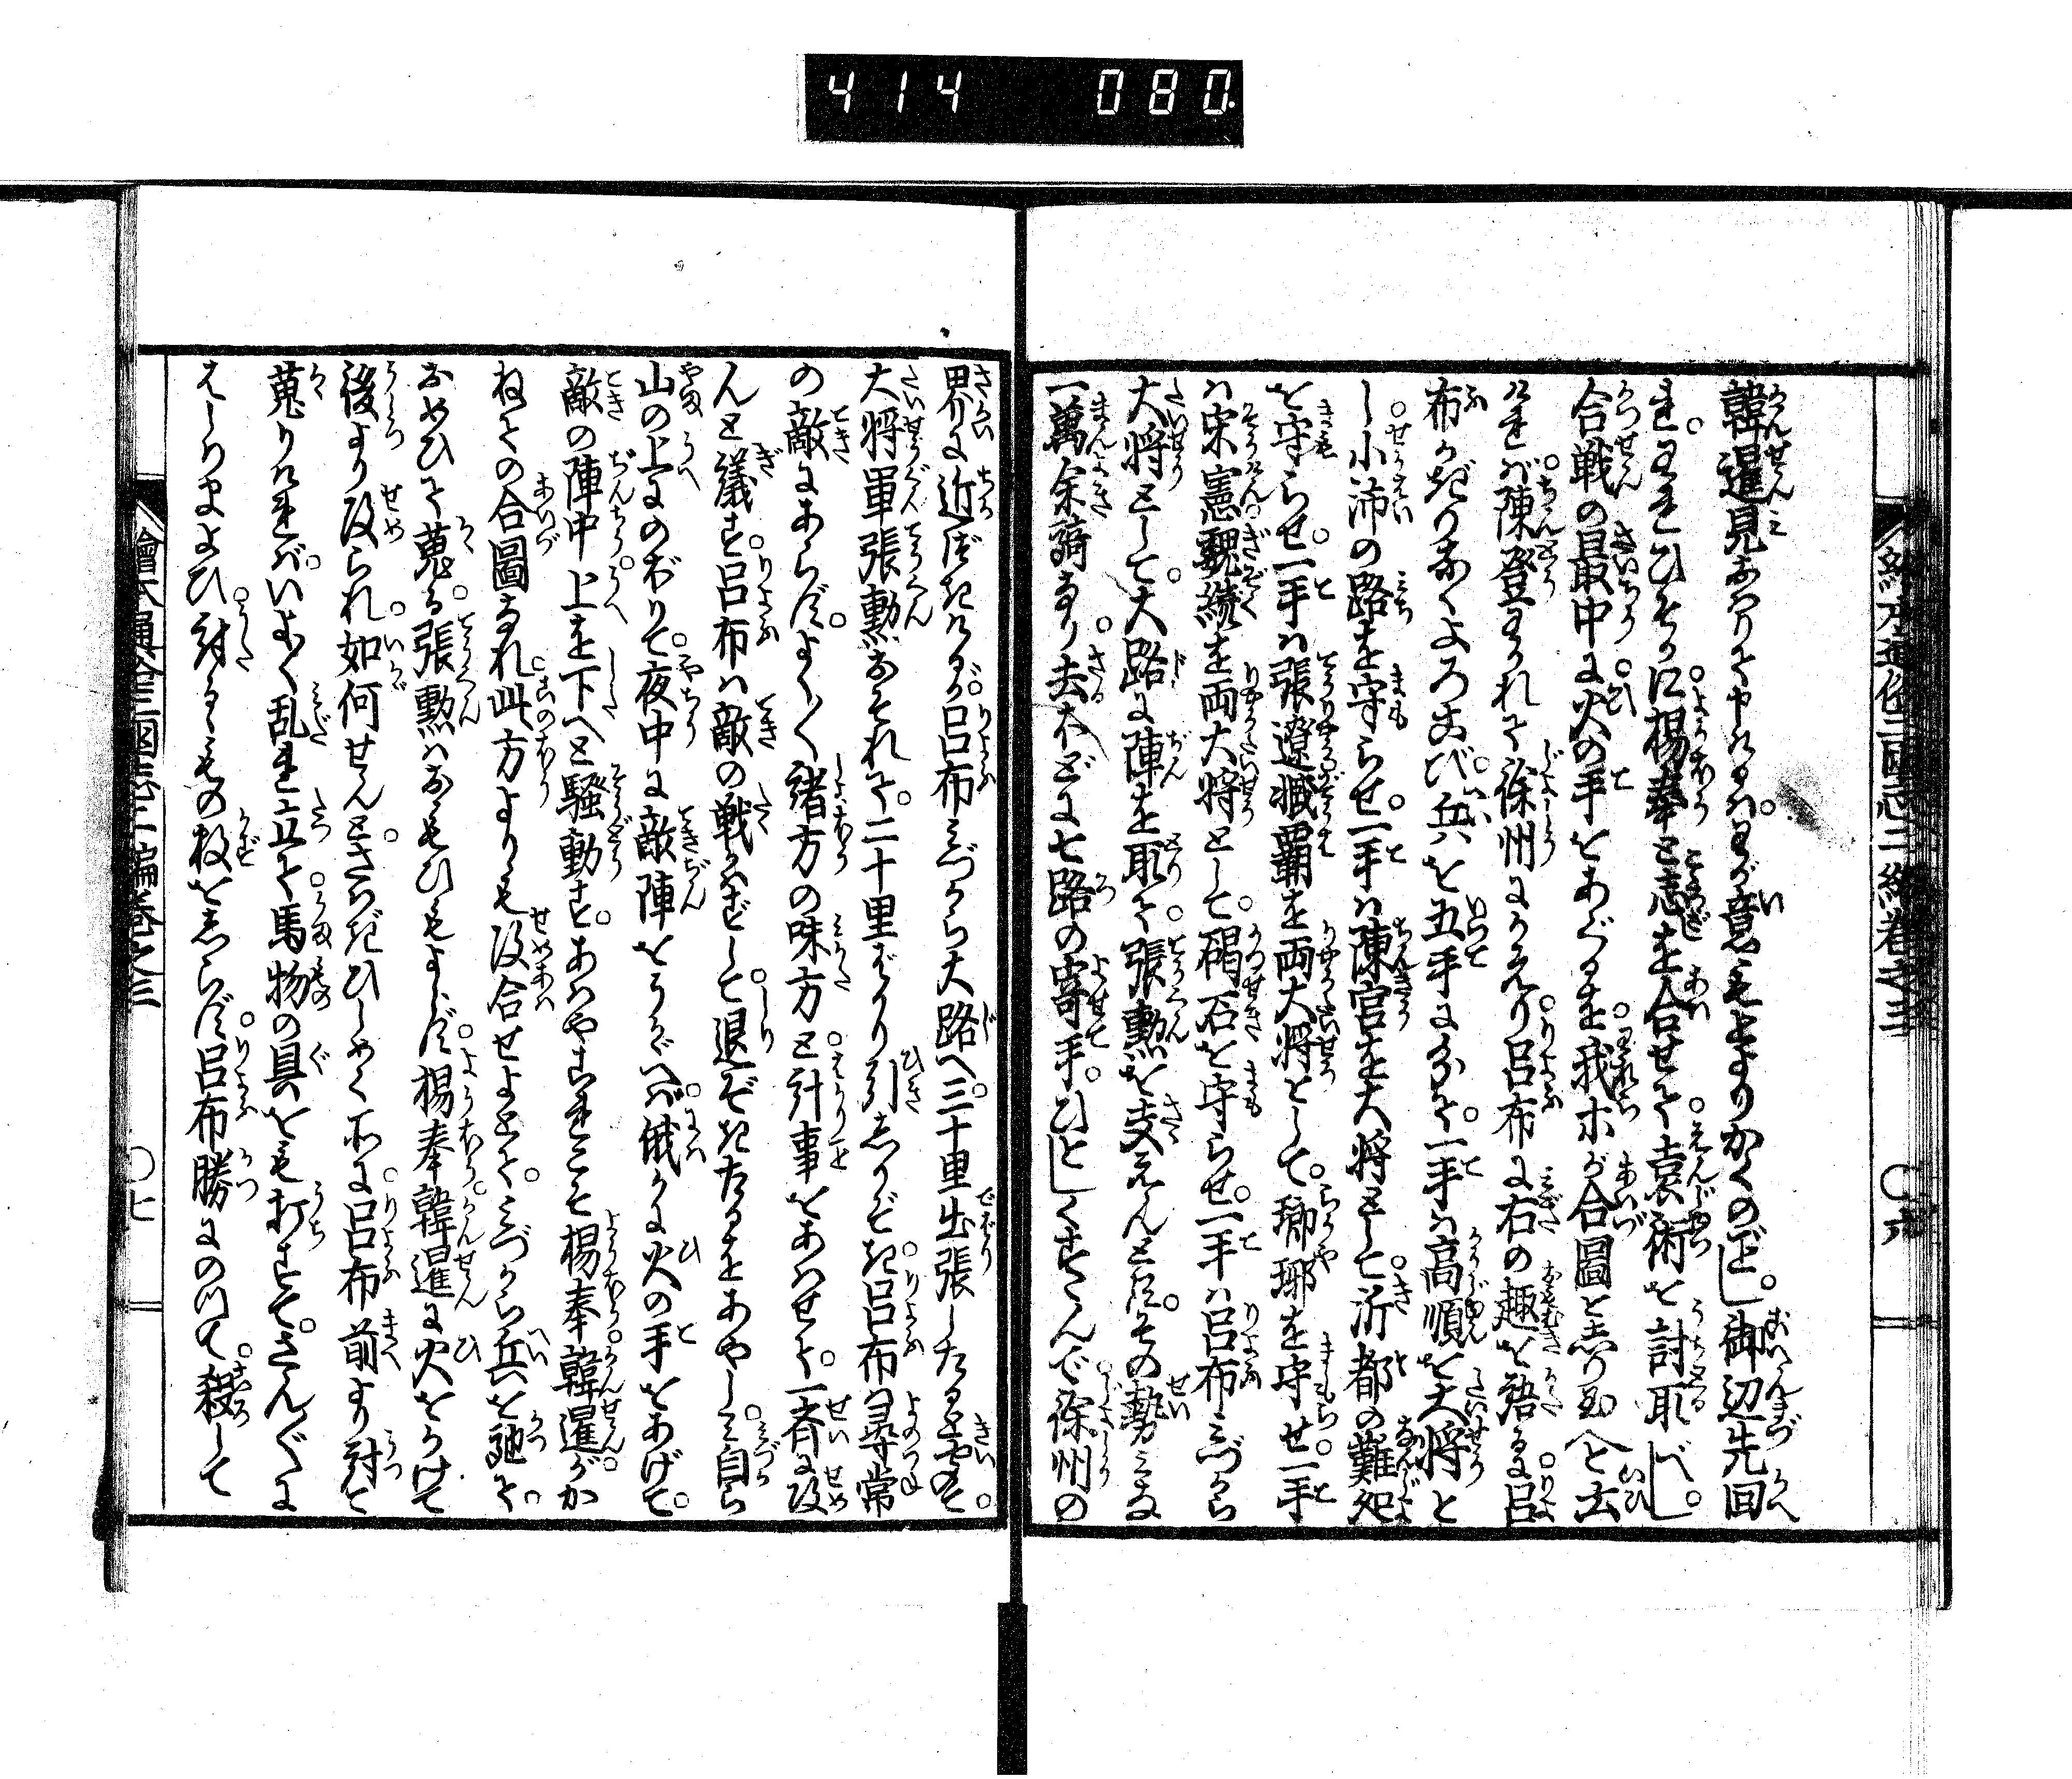 414 080
韓暹見おはりて申けるは。わが意もとよりかくのごとし。御辺先回
れ。われひそかに楊奉と志を合せて袁術を討取べし。
合戦の最中に火の手をあぐるを我ホが合圖と志り玉へと云
ければ陳登わかれて徐州にかへり呂布に右の趣を語るに呂
布かぎりなくよろこび。兵を五手に分て。一手は高順を大将と
し小沛の路を守らせ。一手は陳宮を大将として沂都の難処
を守らせ。一手は張遼臧覇を両大将として。瑯琊を守せ。一手
は宋憲魏続を両大将として。碣石を守らせ。一手は呂布みづから
大将として。大路に陣を取て。張勲を支えんとす。その勢みな
一萬余騎なり。去ホどに七路の寄手。ひとしくすゝんで徐州の
界に近づきけるが。呂布みづから大路へ。三十里出張したるときいて。
大将軍張勲おそれて。二十里ばかり引志りぞき。呂布は尋常
の敵にあらず。よく〱諸方の味方と計事をあはせて。一斉に攻
んと議す。呂布は敵の戦はずして。退ぞきたるをあやしみ自ら
山の上にのぼりて。夜中に敵陣をうかゞへば。俄かに火の手をあげて。
敵の陣中上を下へと騒動す。あはやこれこそ楊奉韓暹がか
ねての合圖なれ。此方よりも攻合せよとて。みづから兵を馳て。
おめひて蒐る。張勲はおもひもよらず。楊奉韓暹に火をうけて
後より攻られ。如何せんと。さはぎひしめく所に。呂布前より討て
蒐りければ。いよ〱乱れ立て。馬物の具をも打すて。さん〲に
はしりまよひ。討るゝもの数を志らず。呂布勝にのりて。殺して
繪本通俗三國志二編巻之三 〇六
繪本通俗三國志二編巻之三 〇七